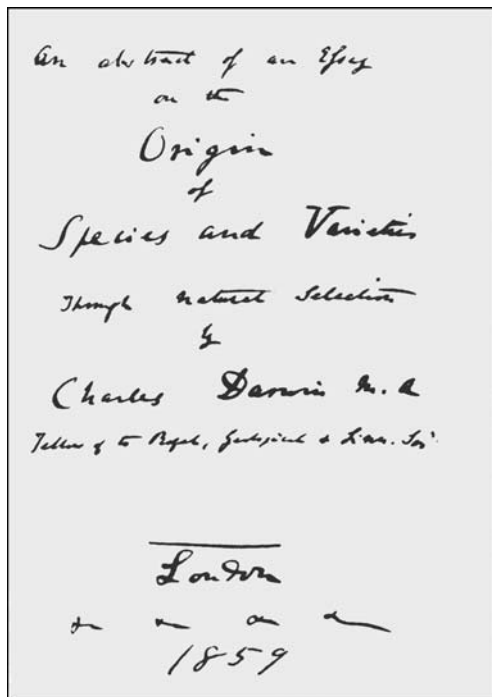 An abstract of an Essay
on the
Origin
of
Species and Varieties
Through natural selection
by
Charles Darwin M. A
Fellow of the Royal, Geological & Linn. Soc.
London
1859